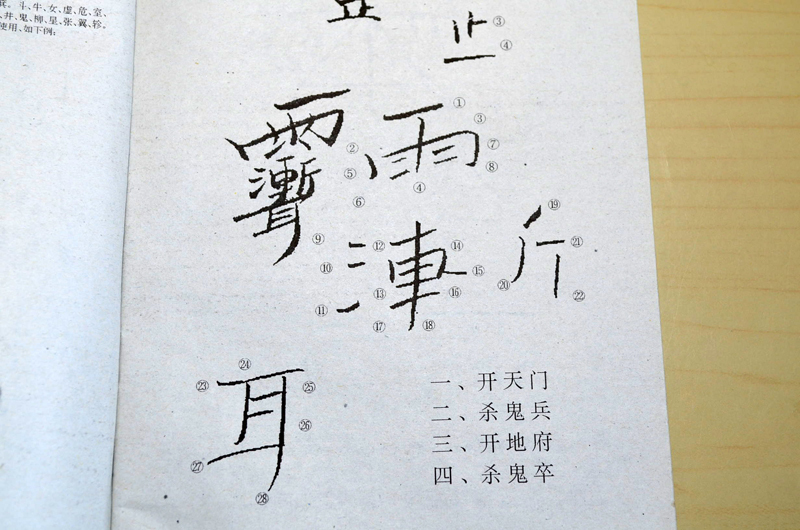 兵。斗、牛、女、虚、危、室、
井、鬼、柳、星、张、翼、轸。
使用、如下例：
③
止
④
①
雨
③
②
⑦
⑤
⑧
④
⑥
⑲
斤
⑨
⑫
⑭
㉑
漸
⑩
⑮
⑳
⑬
⑯
㉒
⑪
⑰
⑱
㉔
㉓
耳
㉕
㉖
㉗
㉘
一、开天门
二、杀鬼兵
三、开地府
四、杀鬼卒